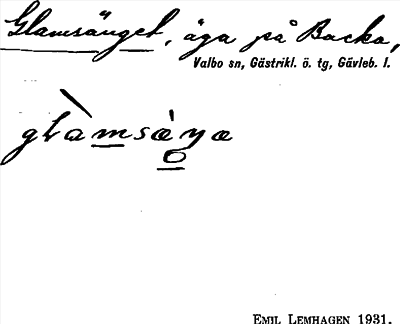 Glamsänget, äga på Backa,
Valbo sn, Gästrikl. ö. tg, Gävleb. l.
Emil Lemhagen 1931.